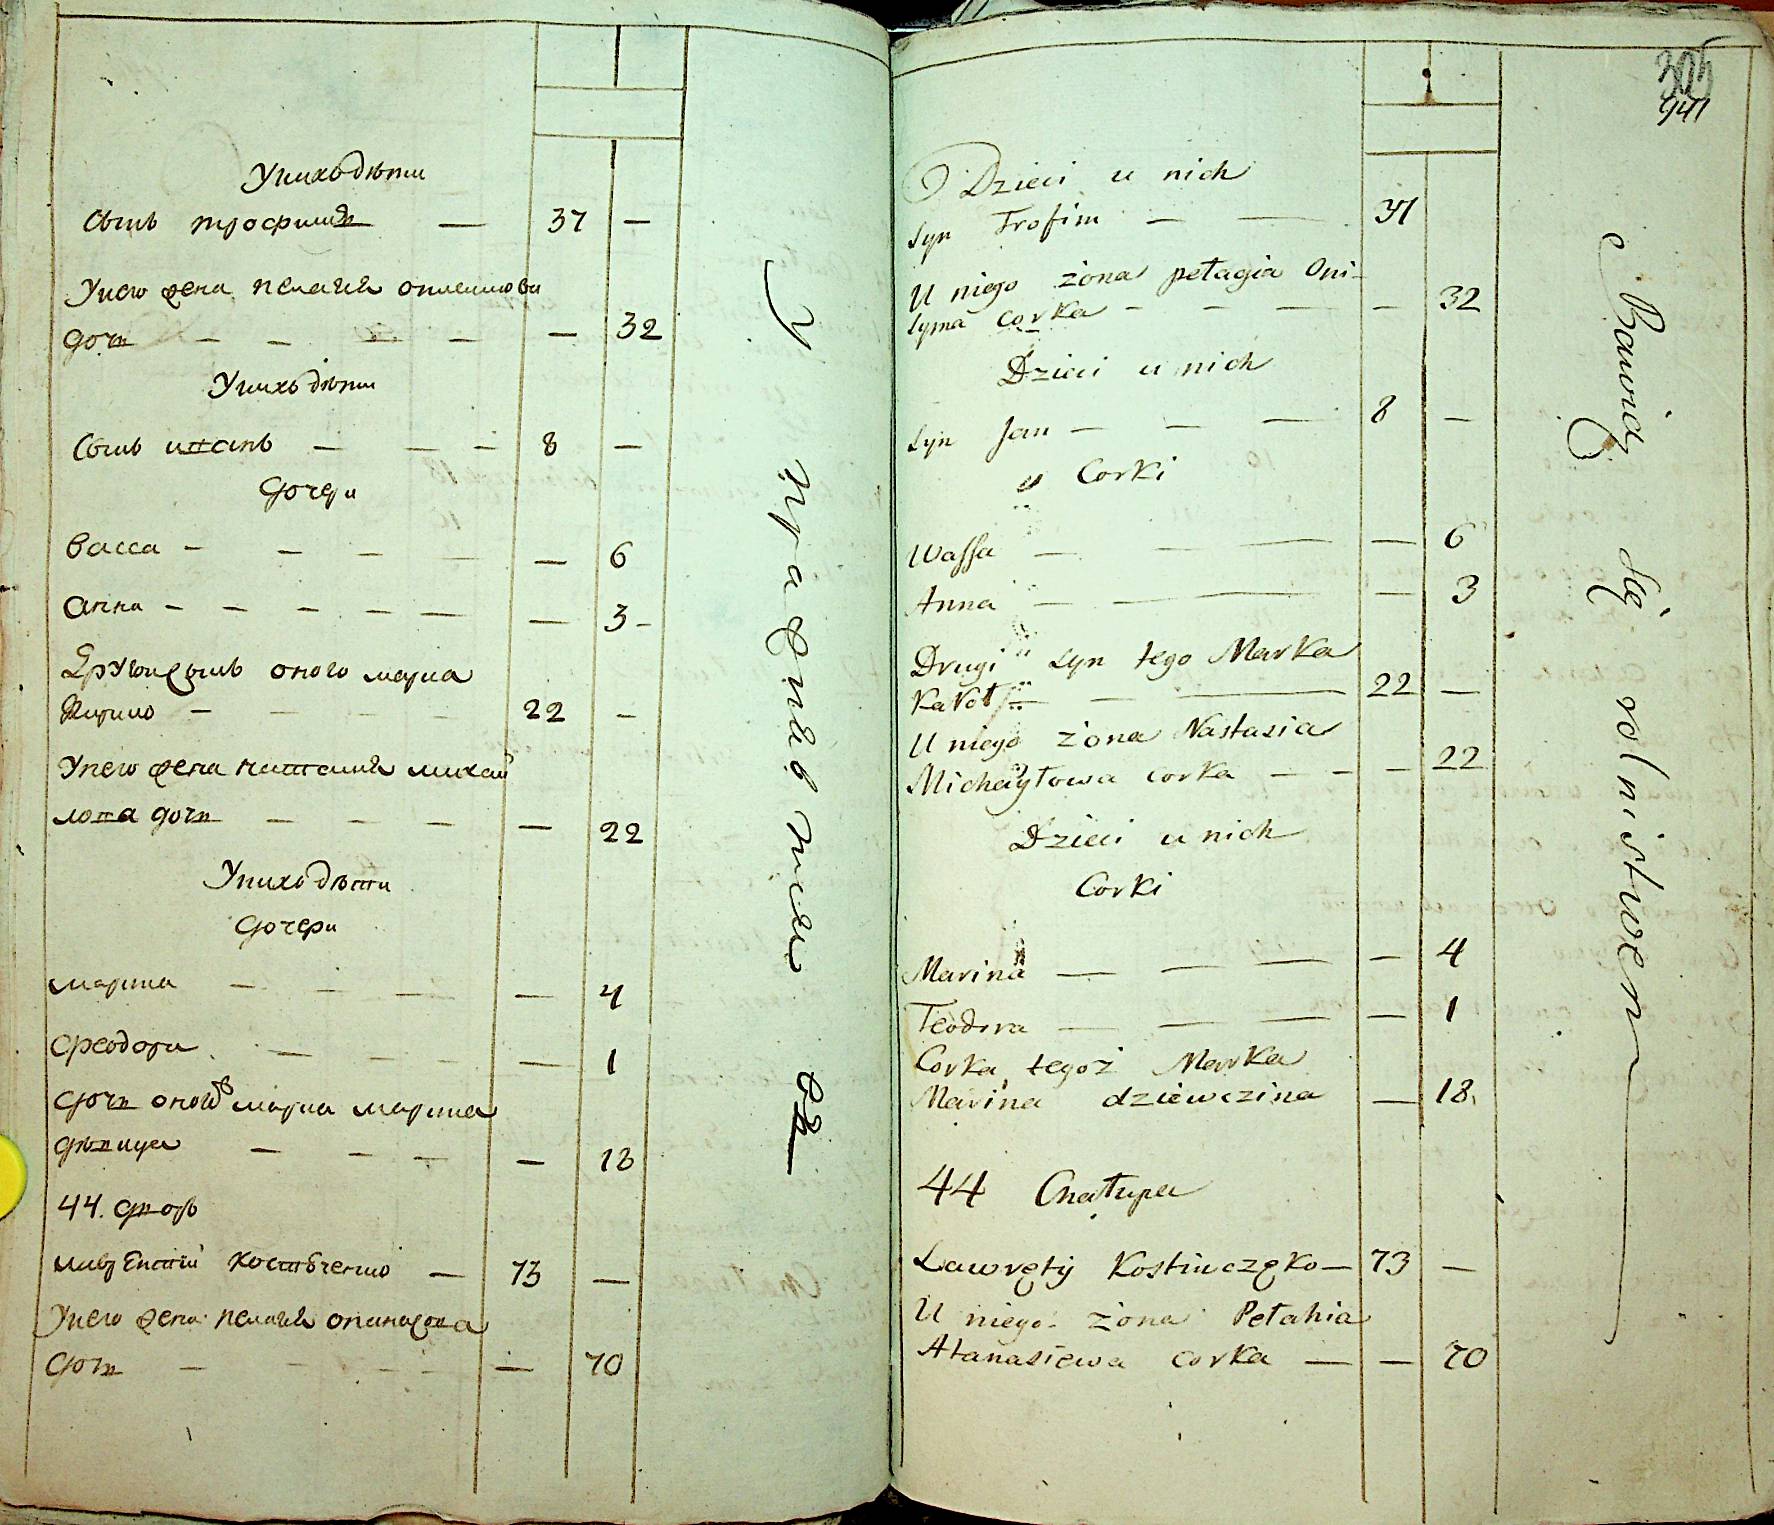 У нихъ дѣти
Сынъ трофимъ — 37 —
У него жена пелагия онисимова
дочь — — — — — 32
У нихъ дѣти
Сынъ иванъ — — — 8 —
дочери
васса — — — — — 6
анна — — — — — — 3 —
другий сынъ оного марка
Кирило — 22 —
У него жена настасия михай
лова дочь — — — — 22
У нихъ дѣти
дочери
марина — — — — 4
феодора — — — — 1
дочь оного марка марина
дѣвица — — — — 18
44. двор
лаврентий костюченко — 73 —
У него жена пелагия опанасова
дочь — — 70
305
941
Dzieci u nich
Syn Trofim — — 37
U niego żona pełagia Oni-
syma corka - - — — 32
Dzieci u nich
Syn Jan — — — 8 —
Corki
Wassa — — — — 6
Anna — — — — 3
Drugi syn tego Marka
— — 22 —
U niego żona Nastasia
Michayłowa corka — - — 22
Dzieci u nich
Corki
Marina — — — — 4
Teodora — — — — 1
Corka tegoż Marka
Marina dziewczina — 18
44 Chałupa
Lawręty Kostiuczęko — 73 —
U niego żona Pełahia
Atanasiewa corka — — 70
Bawią się rolnistwem